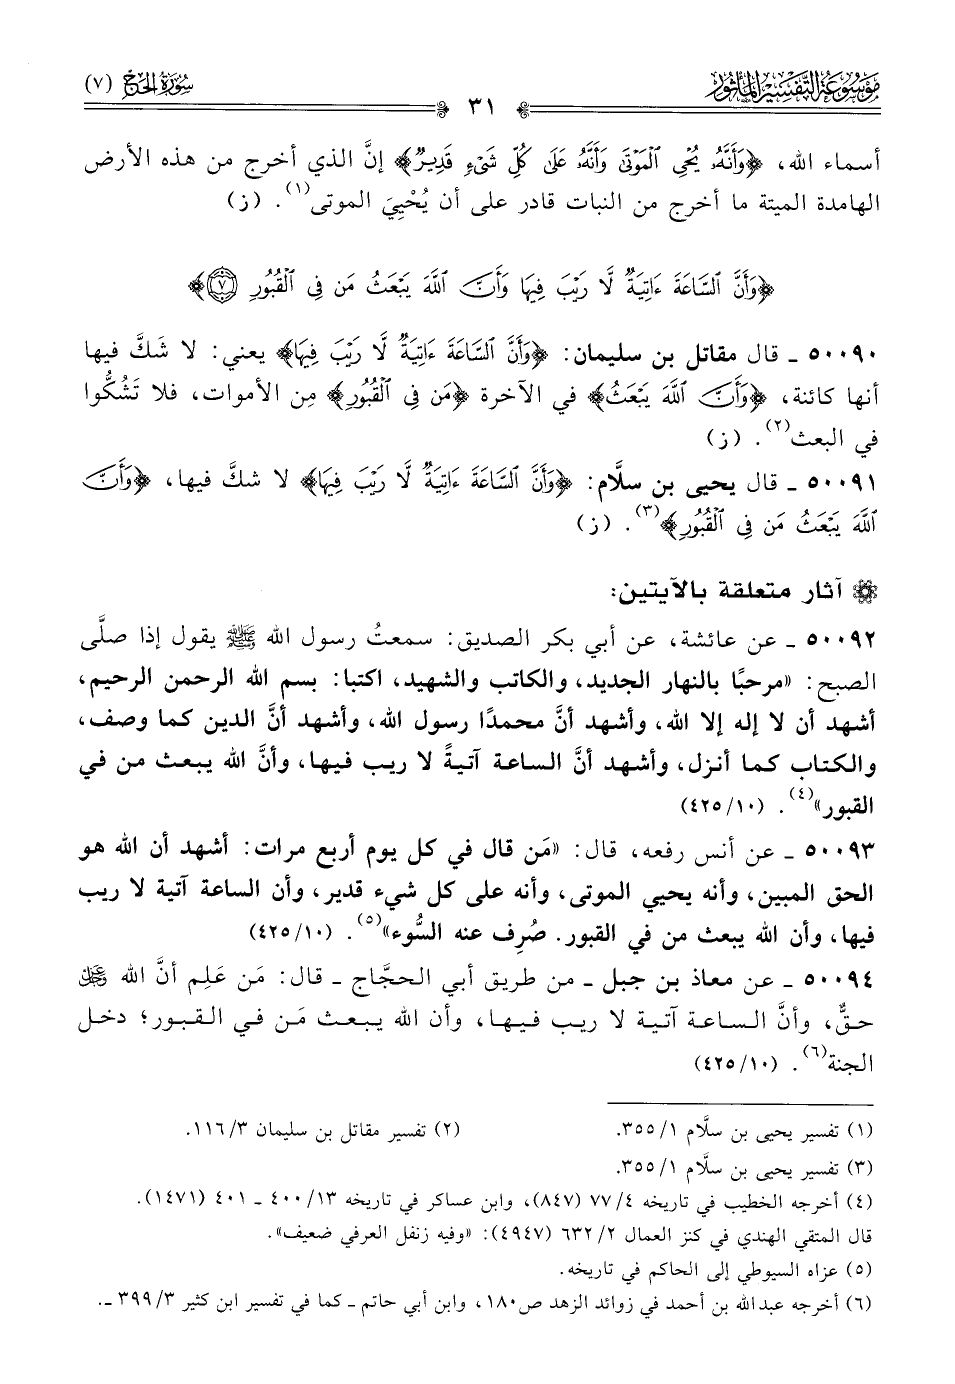 مَوْسُوعَةُ التَّفْسِيرِ المَأْثُورِ
٣١
سُورَةُ الحَجّ (٧)
أسماء الله، ﴿وَأَنَّهُۥ يُحْىِ ٱلْمَوْتَىٰ وَأَنَّهُۥ عَلَىٰ كُلِّ شَىْءٍ قَدِيرٌ﴾ إنَّ الذي أخرج من هذه الأرض
الهامدة الميتة ما أخرج من النبات قادر على أن يُحْيِيَ الموتى(١). (ز)
﴿وَأَنَّ ٱلسَّاعَةَ ءَاتِيَةٌ لَّا رَيْبَ فِيهَا وَأَنَّ ٱللَّهَ يَبْعَثُ مَن فِى ٱلْقُبُورِ ٧﴾
٥٠٠٩٠ ـ قال مقاتل بن سليمان: ﴿وَأَنَّ ٱلسَّاعَةَ ءَاتِيَةٌ لَّا رَيْبَ فِيهَا﴾ يعني: لا شَكَّ فيها
أنها كائنة، ﴿وَأَنَّ ٱللَّهَ يَبْعَثُ﴾ في الآخرة ﴿مَن فِى ٱلْقُبُورِ﴾ مِن الأموات، فلا تَشُكُّوا
في البعث(٢). (ز)
٥٠٠٩١ ـ قال يحيى بن سلَّام: ﴿وَأَنَّ ٱلسَّاعَةَ ءَاتِيَةٌ لَّا رَيْبَ فِيهَا﴾ لا شكَّ فيها، ﴿وَأَنَّ
ٱللَّهَ يَبْعَثُ مَن فِى ٱلْقُبُورِ﴾(٣). (ز)
آثار متعلقة بالآيتين:
٥٠٠٩٢ ـ عن عائشة، عن أبي بكر الصديق: سمعتُ رسول الله ﷺ يقول إذا صلَّى
الصبح: «مرحبًا بالنهار الجديد، والكاتب والشهيد، اكتبا: بسم الله الرحمن الرحيم،
أشهد أن لا إله إلا الله، وأشهد أنَّ محمدًا رسول الله، وأشهد أنَّ الدين كما وصف،
والكتاب كما أنزل، وأشهد أنَّ الساعة آتيةً لا ريب فيها، وأنَّ الله يبعث من في
القبور»(٤). (٤٢٥/١٠)
٥٠٠٩٣ ـ عن أنس رفعه، قال: «مَن قال في كل يوم أربع مرات: أشهد أن الله هو
الحق المبين، وأنه يحيي الموتى، وأنه على كل شيء قدير، وأن الساعة آتية لا ريب
فيها، وأن الله يبعث من في القبور. صُرِف عنه السُّوء»(٥). (٤٢٥/١٠)
٥٠٠٩٤ ـ عن معاذ بن جبل ـ من طريق أبي الحجَّاج ـ قال: مَن عَلِم أنَّ الله ﷿
حقٌّ، وأنَّ الساعة آتية لا ريب فيها، وأن الله يبعث مَن في القبور؛ دخل
الجنة(٦). (٤٢٥/١٠)
(١) تفسير يحيى بن سلَّام ١/ ٣٥٥. (٢) تفسير مقاتل بن سليمان ٣/ ١١٦.
(٣) تفسير يحيى بن سلَّام ١/ ٣٥٥.
(٤) أخرجه الخطيب في تاريخه ٤/ ٧٧ (٨٤٧)، وابن عساكر في تاريخه ١٣/ ٤٠٠ ـ ٤٠١ (١٤٧١).
قال المتقي الهندي في كنز العمال ٢/ ٦٣٢ (٤٩٤٧): «وفيه زنفل العرفي ضعيف».
(٥) عزاه السيوطي إلى الحاكم في تاريخه.
(٦) أخرجه عبدالله بن أحمد في زوائد الزهد ص١٨٠، وابن أبي حاتم ـ كما في تفسير ابن كثير ٣/ ٣٩٩ ـ.